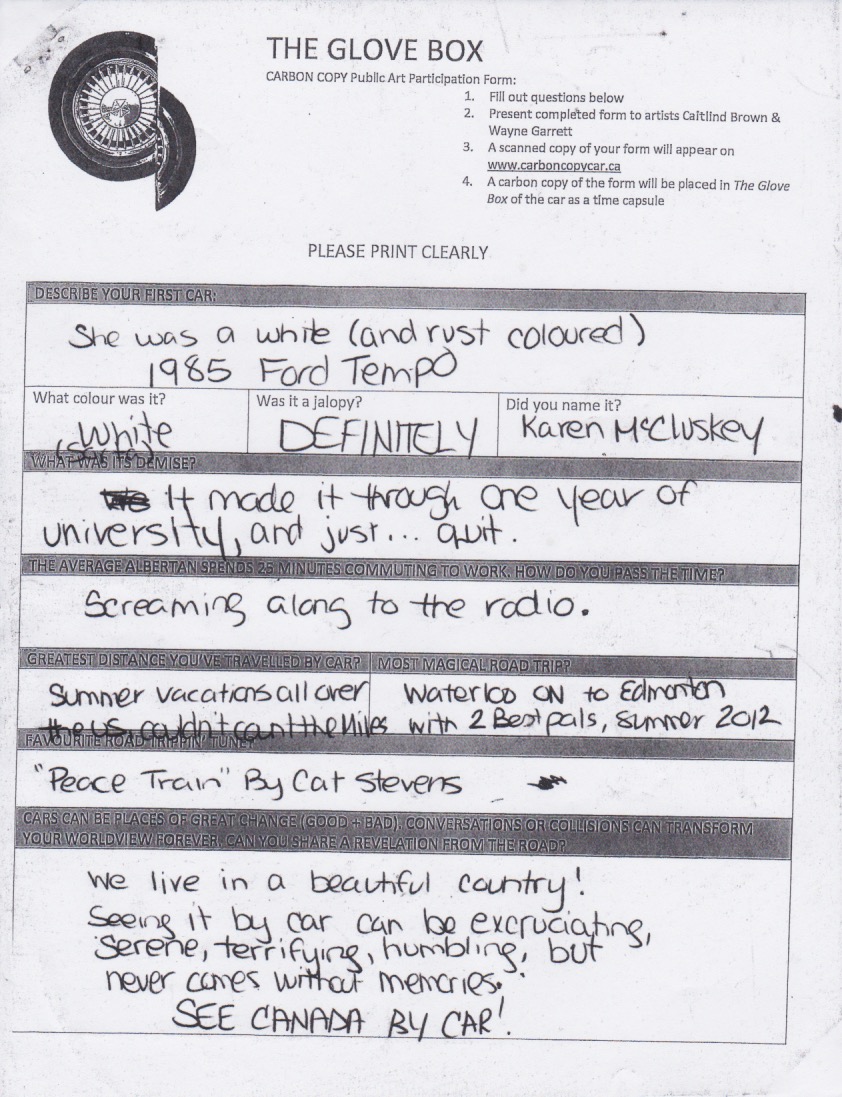 THE GLOVE BOX
CARBON COPY Public Art Participation Form:
1. Fill out questions below
2. Present completed form to artists Caitlind Brown &
Wayne Garrett
3. A scanned copy of your form will appear on
www.carboncopycar.ca
4. A carbon copy of the form will be placed in The Glove
Box of the car as a time capsule
PLEASE PRINT CLEARLY
DESCRIBE YOUR FIRST CAR:
She was a white (and rust coloured)
1985 Ford Tempo
What colour was it?
White
Was it a jalopy?
DEFINITELY
Did you name it?
Karen McCluskey
WHAT WAS ITS DEMISE?
It made it through one year of
university, and just... quit.
THE AVERAGE ALBERTAN SPENDS 25 MINUTES COMMUTING TO WORK. HOW DO YOU PASS THE TIME?
Screaming along to the radio.
GREATEST DISTANCE YOU'VE TRAVELLED BY CAR?
Summer vacations all over
the US, couldn't count the Miles
MOST MAGICAL ROAD TRIP?
Waterloo ON to Edmonton
with 2 Best pals, summer 2012
FAVOURITE ROAD TRIPPIN' TUNE?
"Peace Train" By Cat Stevens
CARS CAN BE PLACES OF GREAT CHANGE (GOOD + BAD). CONVERSATIONS OR COLLISIONS CAN TRANSFORM
YOUR WORLDVIEW FOREVER. CAN YOU SHARE A REVELATION FROM THE ROAD?
We live in a beautiful country!
Seeing it by car can be excruciating,
serene, terrifying, humbling, but
never comes without memories.
SEE CANADA BY CAR!